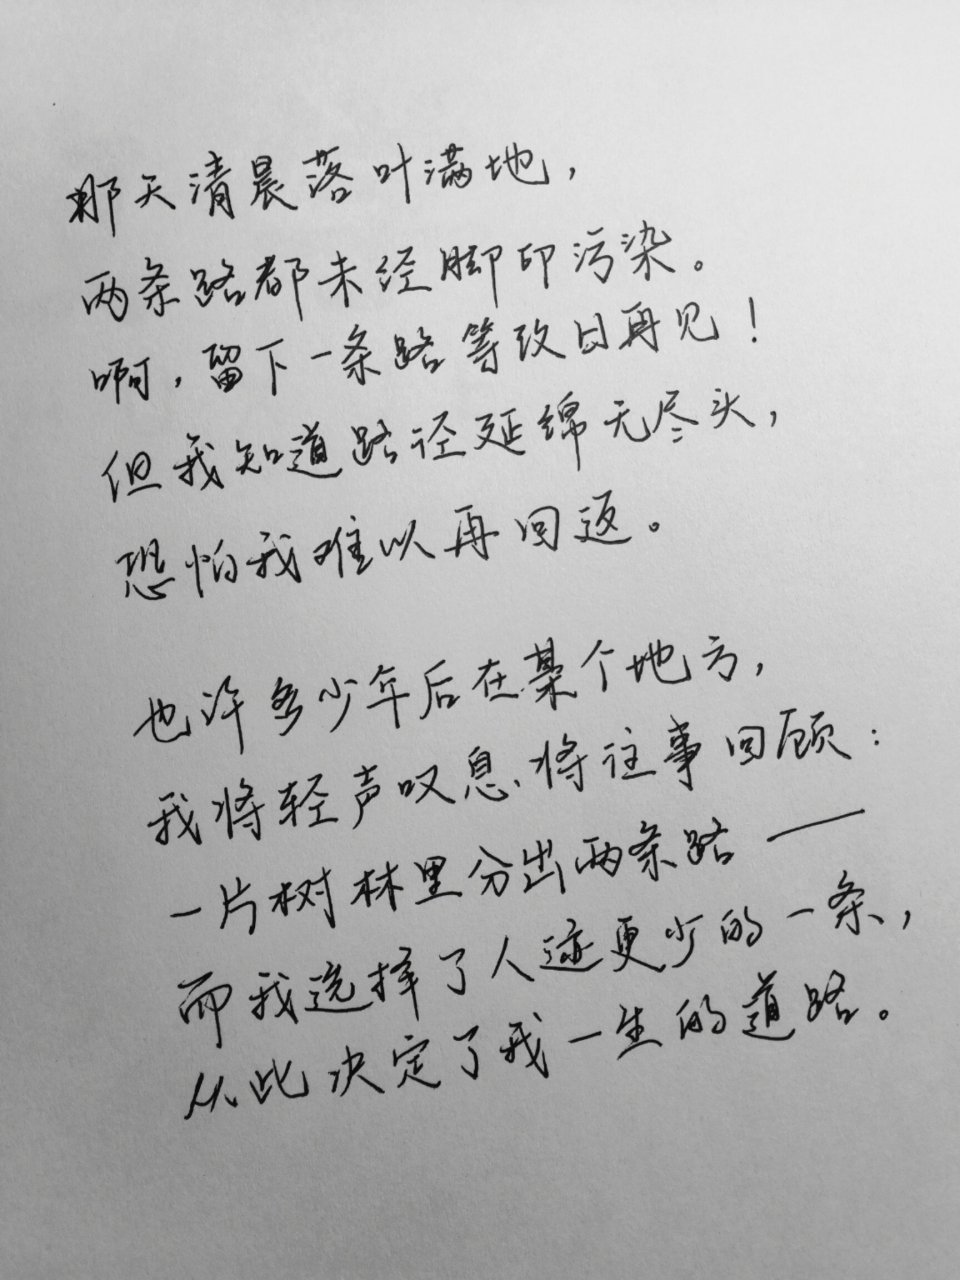 那天清晨落叶满地，
两条路都未经脚印污染。
啊，留下一条路等改日再见！
但我知道路径延绵无尽头，
恐怕我难以再回返。
也许多少年后在某个地方，
我将轻声叹息、将往事回顾：
一片树林里分出两条路——
而我选择了人迹更少的一条，
从此决定了我一生的道路。